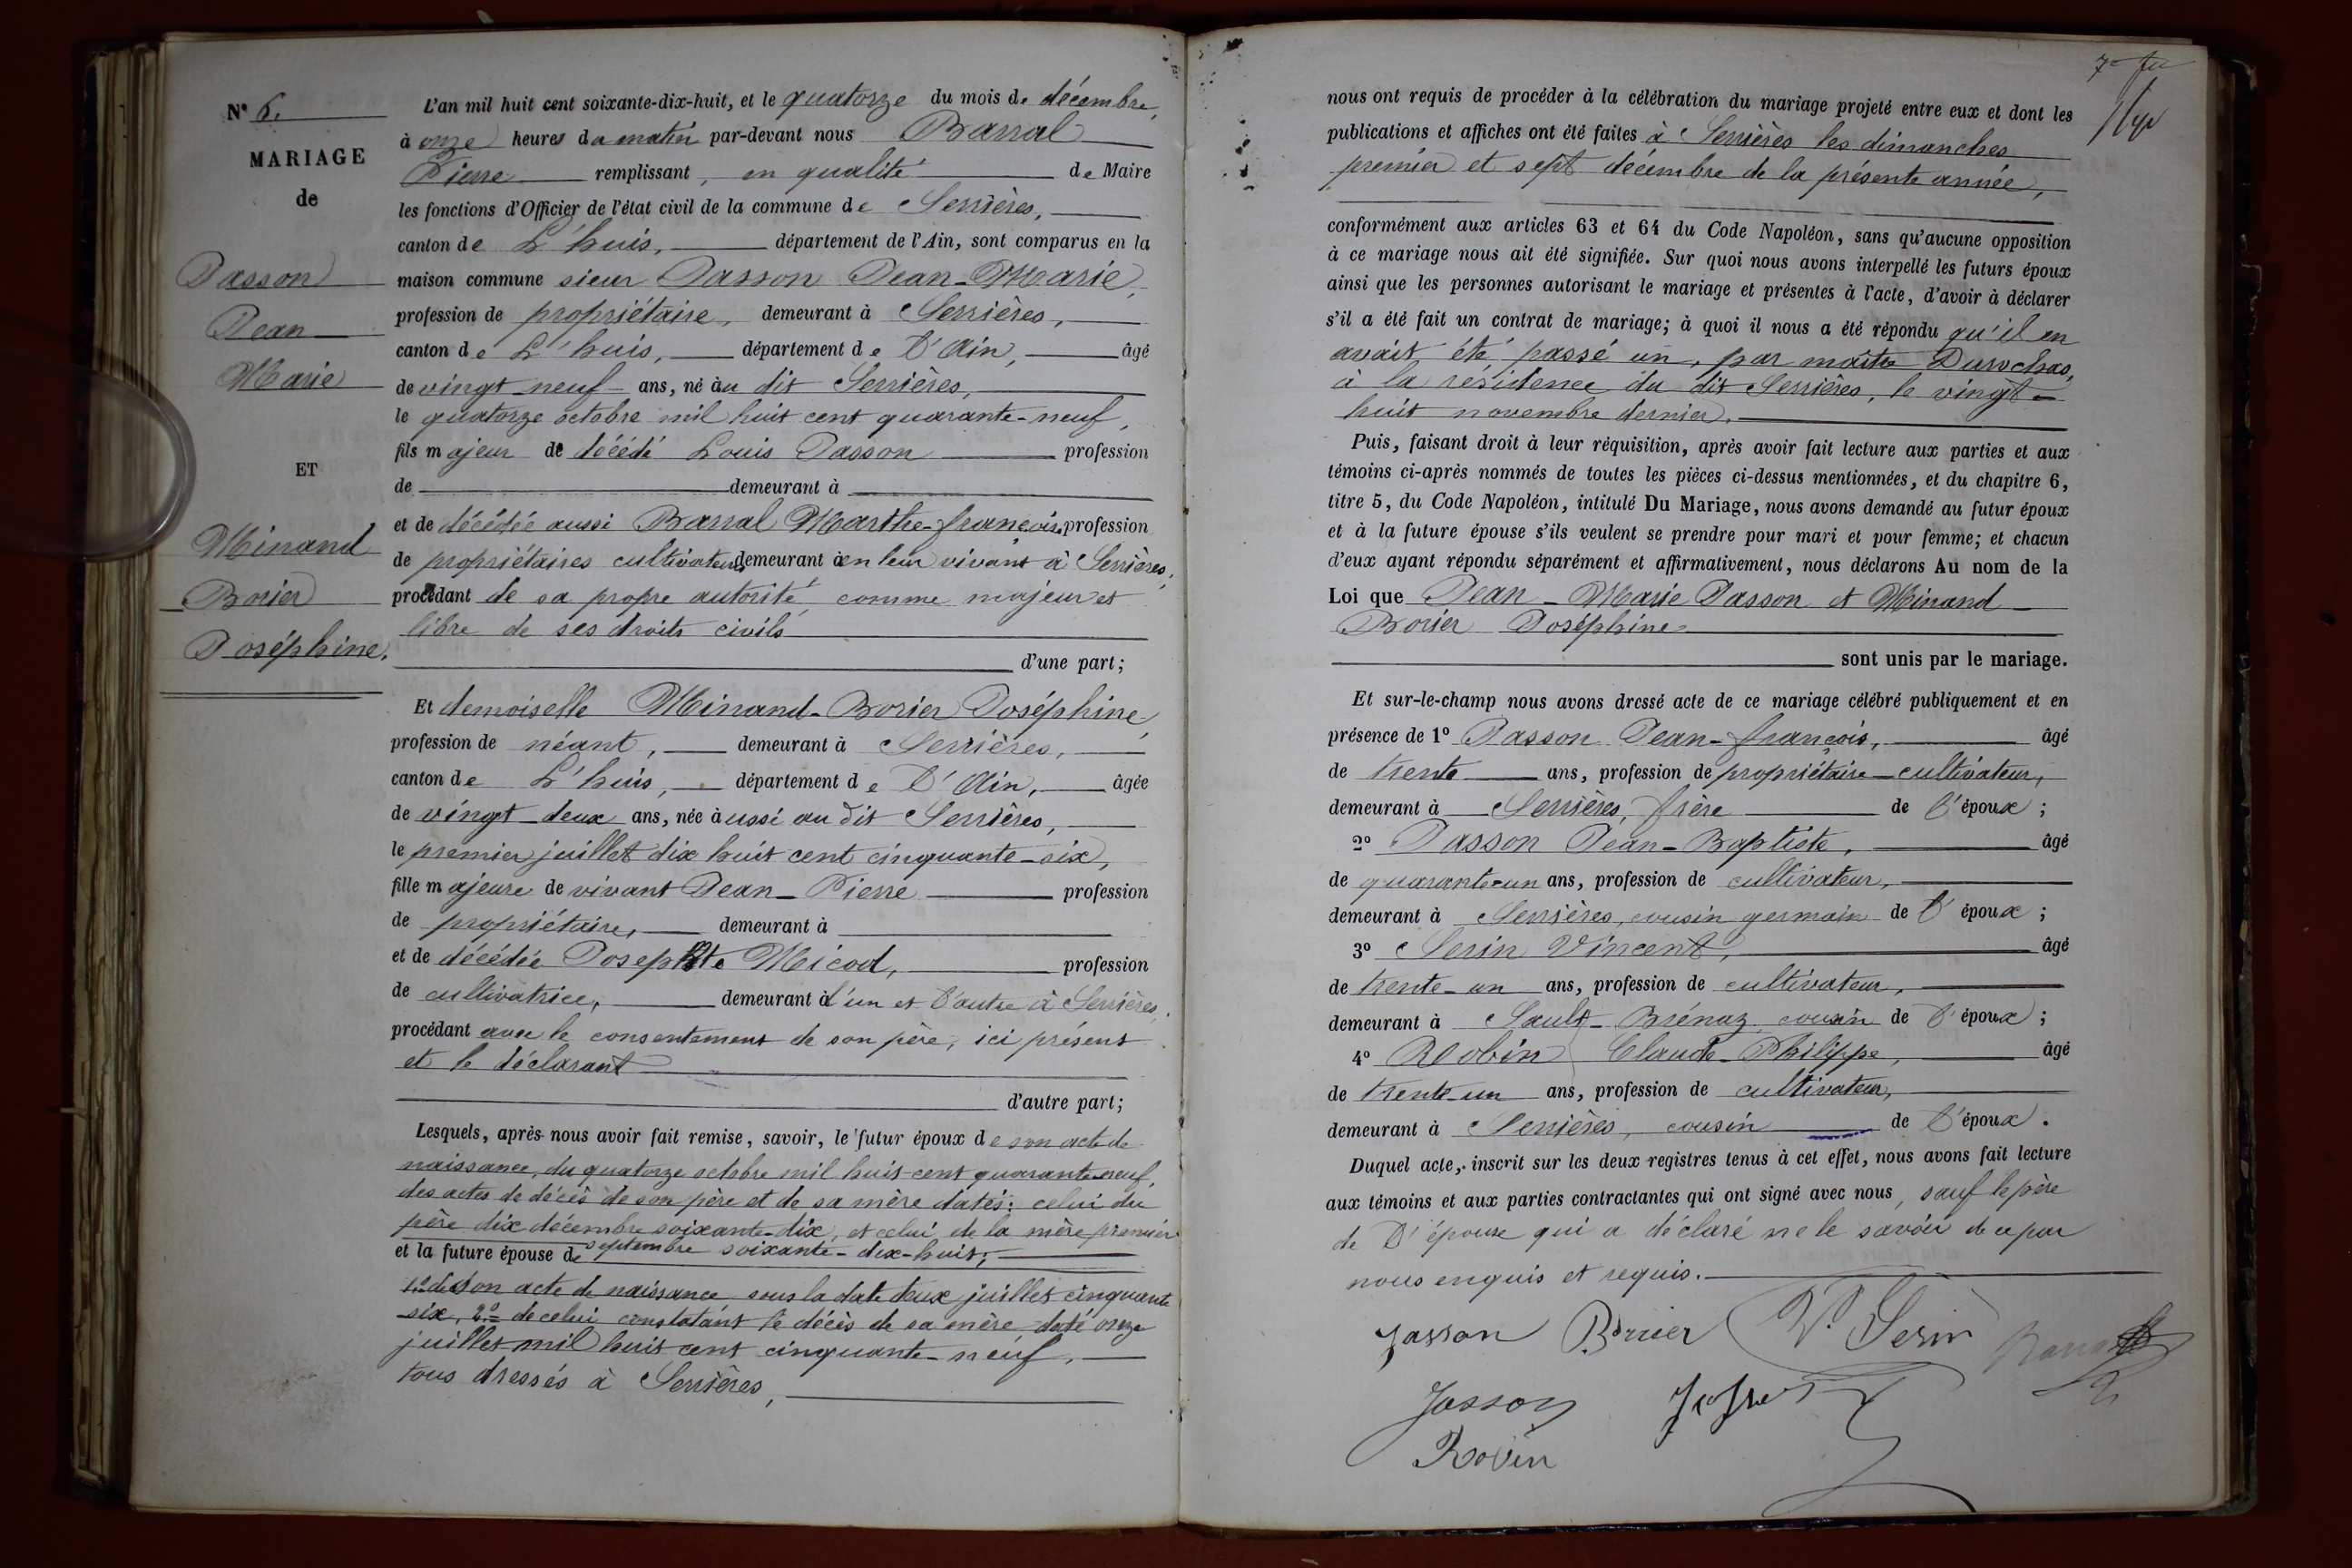 N° 6.
MARIAGE
de
Jasson
Jean
Marie
ET
Minand
Borier
Joséphine.
L'an mil huit cent soixante-dix-huit, et le quatorze du mois de décembre,
à onze heures du matin par-devant nous Barral
Pierre remplissant, en qualité de Maire
les fonctions d'Officier de l'état civil de la commune de Serrières,
canton de L'huis, département de l'Ain, sont comparus en la
maison commune sieur Jasson Jean-Marie,
profession de propriétaire, demeurant à Serrières,
canton de L'huis, département de l'Ain, âgé
de vingt neuf ans, né au dit Serrières,
le quatorze octobre mil huit cent quarante-neuf,
fils majeur de décédé Louis Jasson profession
de demeurant à
et de décédée aussi Barral Marthe-françoise profession
de propriétaires cultivateurs demeurant à en leur vivant à Serrières,
procédant de sa propre autorité comme majeur et
libre de ses droits civils
d'une part;
Et demoiselle Minand-Borier Joséphine,
profession de néant, demeurant à Serrières,
canton de L'huis, département de l'Ain, âgée
de vingt-deux ans, née aussi au dit Serrières,
le premier juillet dix huit cent cinquante-six,
fille majeure de vivant Jean-Pierre profession
de propriétaire, demeurant à
et de décédée Josephte Micod, profession
de cultivatrice, demeurant à l'un et l'autre à Serrières,
procédant avec le consentement de son père, ici présent
et le déclarant
d'autre part;
Lesquels, après nous avoir fait remise, savoir, le futur époux de son acte de
naissance, du quatorze octobre mil huit cent quarante neuf,
des actes de décès de son père et de sa mère datés: celui du
père dix décembre soixante-dix, et celui de la mère premier
et la future épouse de septembre soixante-dix-huit;
1° de son acte de naissance sous la date deux juillet cinquante
six, 2° de celui constatant le décès de sa mère daté onze
juillet mil huit cent cinquante-neuf,
tous dressés à Serrières,
nous ont requis de procéder à la célébration du mariage projeté entre eux et dont les
publications et affiches ont été faites à Serrières les dimanches
premier et sept décembre de la présente année,
conformément aux articles 63 et 64 du Code Napoléon, sans qu'aucune opposition
à ce mariage nous ait été signifiée. Sur quoi nous avons interpellé les futurs époux
ainsi que les personnes autorisant le mariage et présentes à l'acte, d'avoir à déclarer
s'il a été fait un contrat de mariage; à quoi il nous a été répondu qu'il en
avait été passé un, par maître Durochas,
à la résidence du dit Serrières, le vingt-
huit novembre dernier.
Puis, faisant droit à leur réquisition, après avoir fait lecture aux parties et aux
témoins ci-après nommés de toutes les pièces ci-dessus mentionnées, et du chapitre 6,
titre 5, du Code Napoléon, intitulé Du Mariage, nous avons demandé au futur époux
et à la future épouse s'ils veulent se prendre pour mari et pour femme; et chacun
d'eux ayant répondu séparément et affirmativement, nous déclarons Au nom de la
Loi que Jean-Marie Jasson et Minand
Borier Joséphine
sont unis par le mariage.
Et sur-le-champ nous avons dressé acte de ce mariage célébré publiquement et en
présence de 1° Jasson Jean-françois, âgé
de trente ans, profession de propriétaire-cultivateur,
demeurant à Serrières, frère de l'époux;
2° Jasson Jean-Baptiste, âgé
de quarante-un ans, profession de cultivateur,
demeurant à Serrières, cousin germain de l'époux;
3° Serin Vincent, âgé
de trente-un ans, profession de cultivateur,
demeurant à Sault-Brénaz, cousin de l'époux;
4° Robin Claude-Philippe, âgé
de trente-un ans, profession de cultivateur,
demeurant à Serrières, cousin de l'époux.
Duquel acte, inscrit sur les deux registres tenus à cet effet, nous avons fait lecture
aux témoins et aux parties contractantes qui ont signé avec nous, sauf le père
de l'épouse qui a déclaré ne le savoir de ce par
nous enquis et requis.
Jasson Borier V. Serin Barral
Jasson
Robin